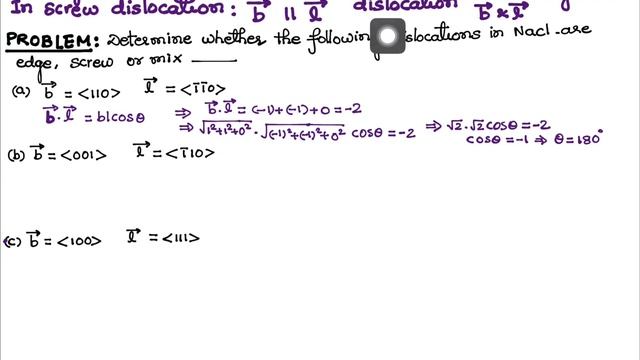 In screw dislocation: b⃗ || l⃗ dislocation b⃗ x l⃗
PROBLEM: Determine whether the following dislocations in Nacl are
edge, screw or mix ____
(a) b⃗ = <110> l⃗ = <1̄1̄0>
b⃗.l⃗ = blcosθ ⇒ b⃗.l⃗ = (-1)+(-1)+0 = -2
⇒ √1²+1²+0² . √(-1)²+(-1)²+0² cosθ = -2 ⇒ √2.√2 cosθ = -2
cosθ = -1 ⇒ θ = 180°
(b) b⃗ = <001> l⃗ = <1̄10>
(c) b⃗ = <100> l⃗ = <111>